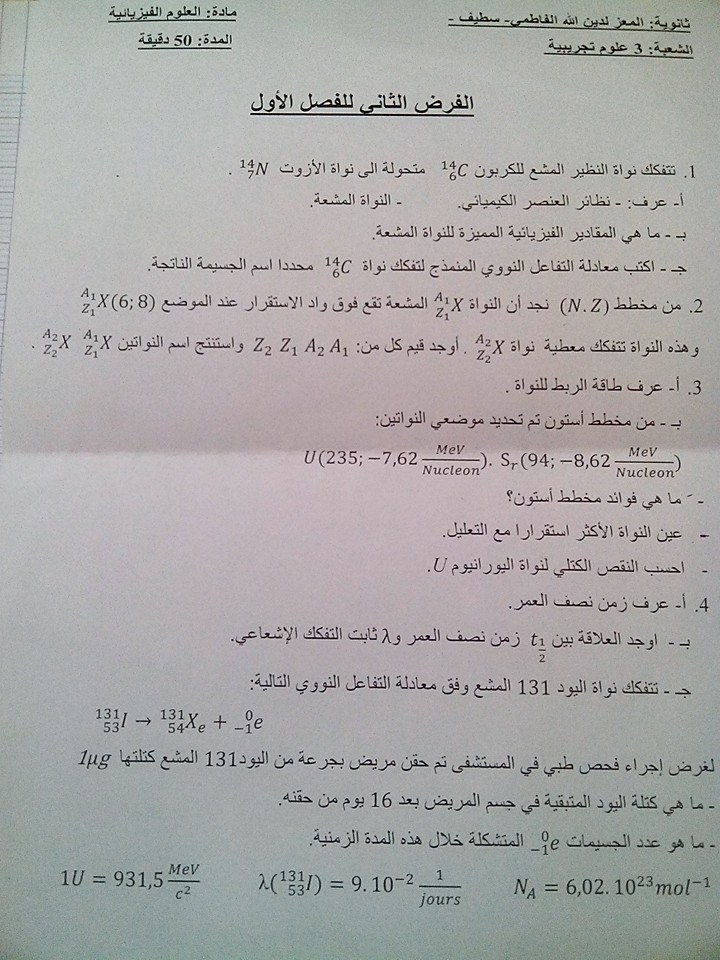 ثانوية: المعز لدين الله الفاطمي- سطيف - مادة: العلوم الفيزيائية
الشعبة: 3 علوم تجريبية المدة: 50 دقيقة
الفرض الثاني للفصل الأول
1. تتفكك نواة النظير المشع للكربون $^{14}_{6}C$ متحولة الى نواة الأزوت $^{14}_{7}N$ .
أ- عرف: - نظائر العنصر الكيميائي. - النواة المشعة.
بـ - ما هي المقادير الفيزيائية المميزة للنواة المشعة.
جـ - اكتب معادلة التفاعل النووي المنمذج لتفكك نواة $^{14}_{6}C$ محددا اسم الجسيمة الناتجة.
2. من مخطط (N.Z) نجد أن النواة $^{A_1}_{Z_1}X$ المشعة تقع فوق واد الاستقرار عند الموضع $^{A_1}_{Z_1}X(6;8)$
وهذه النواة تتفكك معطية نواة $^{A_2}_{Z_2}X$ . أوجد قيم كل من: $Z_2$ $Z_1$ $A_2$ $A_1$ واستنتج اسم النواتين $^{A_1}_{Z_1}X$ $^{A_2}_{Z_2}X$ .
3. أ- عرف طاقة الربط للنواة .
بـ - من مخطط أستون تم تحديد موضعي النواتين:
$U(235; -7,62 \frac{MeV}{Nucleon})$. $S_r(94; -8,62 \frac{MeV}{Nucleon})$
- ما هي فوائد مخطط أستون؟
- عين النواة الأكثر استقرارا مع التعليل.
- احسب النقص الكتلي لنواة اليورانيوم U.
4. أ- عرف زمن نصف العمر.
بـ - اوجد العلاقة بين $t_{\frac{1}{2}}$ زمن نصف العمر و λ ثابت التفكك الإشعاعي.
جـ - تتفكك نواة اليود 131 المشع وفق معادلة التفاعل النووي التالية:
$^{131}_{53}I \rightarrow ^{131}_{54}X_e + ^{0}_{-1}e$
لغرض إجراء فحص طبي في المستشفى تم حقن مريض بجرعة من اليود131 المشع كتلتها 1μg
- ما هي كتلة اليود المتبقية في جسم المريض بعد 16 يوم من حقنه.
- ما هو عدد الجسيمات $^{0}_{-1}e$ المتشكلة خلال هذه المدة الزمنية.
$1U = 931,5 \frac{MeV}{c^2}$ $λ(^{131}_{53}I) = 9.10^{-2} \frac{1}{jours}$ $N_A = 6,02.10^{23} mol^{-1}$